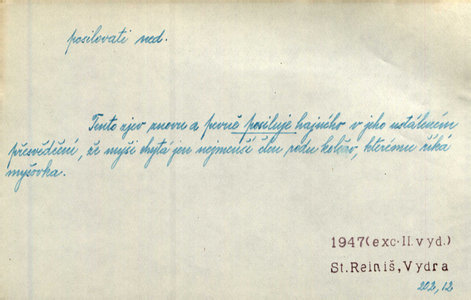 posilovati ned.
Tento zjev znovu a pevně posiluje hajného v jeho ustáleném
přesvědčení, že myši chytá jen nejmenší člen rodu kolčav, kterému říká
myšovka.
1947(exc.II.vyd.)
St.Reiniš,Vydra
202,12